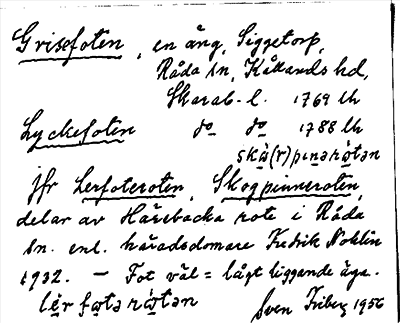 Grisefoten, en äng, Siggetorp,
Råda sn, Kållands hd,
Skarab. l. 1769 lh
Lyckefoten do do 1788 lh
skå(r)pınərωtən
Jfr Lerfoteroten, Skogpinneroten,
delar av Häsebacka rote i Råda
sn. enl. häradsdomare Fredrik Nohlin
1932. – Fot väl = lågt liggande äga.
Sven Friberg 1956